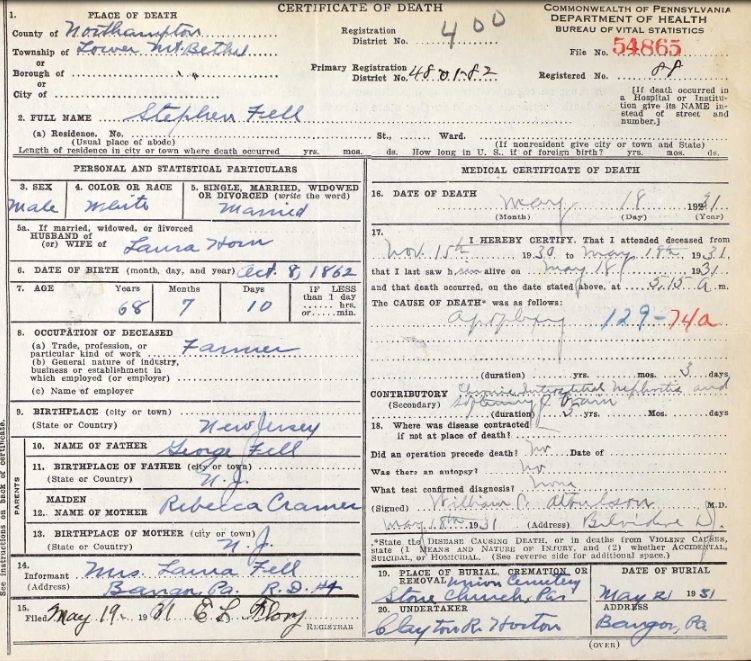 CERTIFICATE OF DEATH
COMMONWEALTH OF PENNSYLVANIA
DEPARTMENT OF HEALTH
BUREAU OF VITAL STATISTICS
1. PLACE OF DEATH
County of Northampton
Township of Lower Mt Bethel
or
Borough of
or
City of
Registration District No. 400
Primary Registration District No. 480182
File No. 54865
Registered No. 88
[If death occurred in a Hospital or Institution give its NAME instead of street and number.]
2. FULL NAME Stephen Fell
(a) Residence. No. St., Ward.
(Usual place of abode) (If nonresident give city or town and State)
Length of residence in city or town where death occurred yrs. mos. ds. How long in U. S., if of foreign birth? yrs. mos. ds.
PERSONAL AND STATISTICAL PARTICULARS
3. SEX Male
4. COLOR OR RACE White
5. SINGLE, MARRIED, WIDOWED OR DIVORCED (write the word) Married
5a. If married, widowed, or divorced
HUSBAND of
(or) WIFE of Laura Horn
6. DATE OF BIRTH (month, day, and year) Oct 8, 1862
7. AGE Years 68 Months 7 Days 10 IF LESS than 1 day hrs. or min.
8. OCCUPATION OF DECEASED
(a) Trade, profession, or particular kind of work Farmer
(b) General nature of industry, business or establishment in which employed (or employer)
(c) Name of employer
9. BIRTHPLACE (city or town)
(State or Country) New Jersey
PARENTS
10. NAME OF FATHER George Fell
11. BIRTHPLACE OF FATHER (city or town)
(State or Country) N. J.
12. MAIDEN NAME OF MOTHER Rebecca Cramer
13. BIRTHPLACE OF MOTHER (city or town)
(State or Country) N. J.
14.
Informant Mrs. Laura Fell
(Address) Bangor, Pa. R. D. #4
15.
Filed May 19 1931 E L Flory
REGISTRAR
See instructions on back of certificate.
MEDICAL CERTIFICATE OF DEATH
16. DATE OF DEATH May 18 1931
(Month) (Day) (Year)
17. I HEREBY CERTIFY, That I attended deceased from
Nov. 15th 1930 to May 18th 1931
that I last saw h alive on May 18 1931
and that death occurred, on the date stated above, at 5.15 a m.
The CAUSE OF DEATH* was as follows:
Apoplexy 129-74a
(duration) yrs. mos. 3 days
CONTRIBUTORY Chronic Interstitial Nephritis and
(Secondary) softening of brain
(duration) yrs. Mos. days
18. Where was disease contracted
if not at place of death?
Did an operation precede death? No Date of
Was there an autopsy? No
What test confirmed diagnosis? None
(Signed) William C. M.D.
May 18th 1931 (Address) Belvidere
*State the DISEASE CAUSING DEATH, or in deaths from VIOLENT CAUSES, state (1 MEANS AND NATURE OF INJURY, and (2) whether ACCIDENTAL, SUICIDAL, or HOMICIDAL. (See reverse side for additional space.)
19. PLACE OF BURIAL, CREMATION, OR REMOVAL Union Cemetery
Stone Church, Pa
DATE OF BURIAL
May 21 1931
20. UNDERTAKER
Clayton R. Horton
ADDRESS
Bangor, Pa
(OVER)